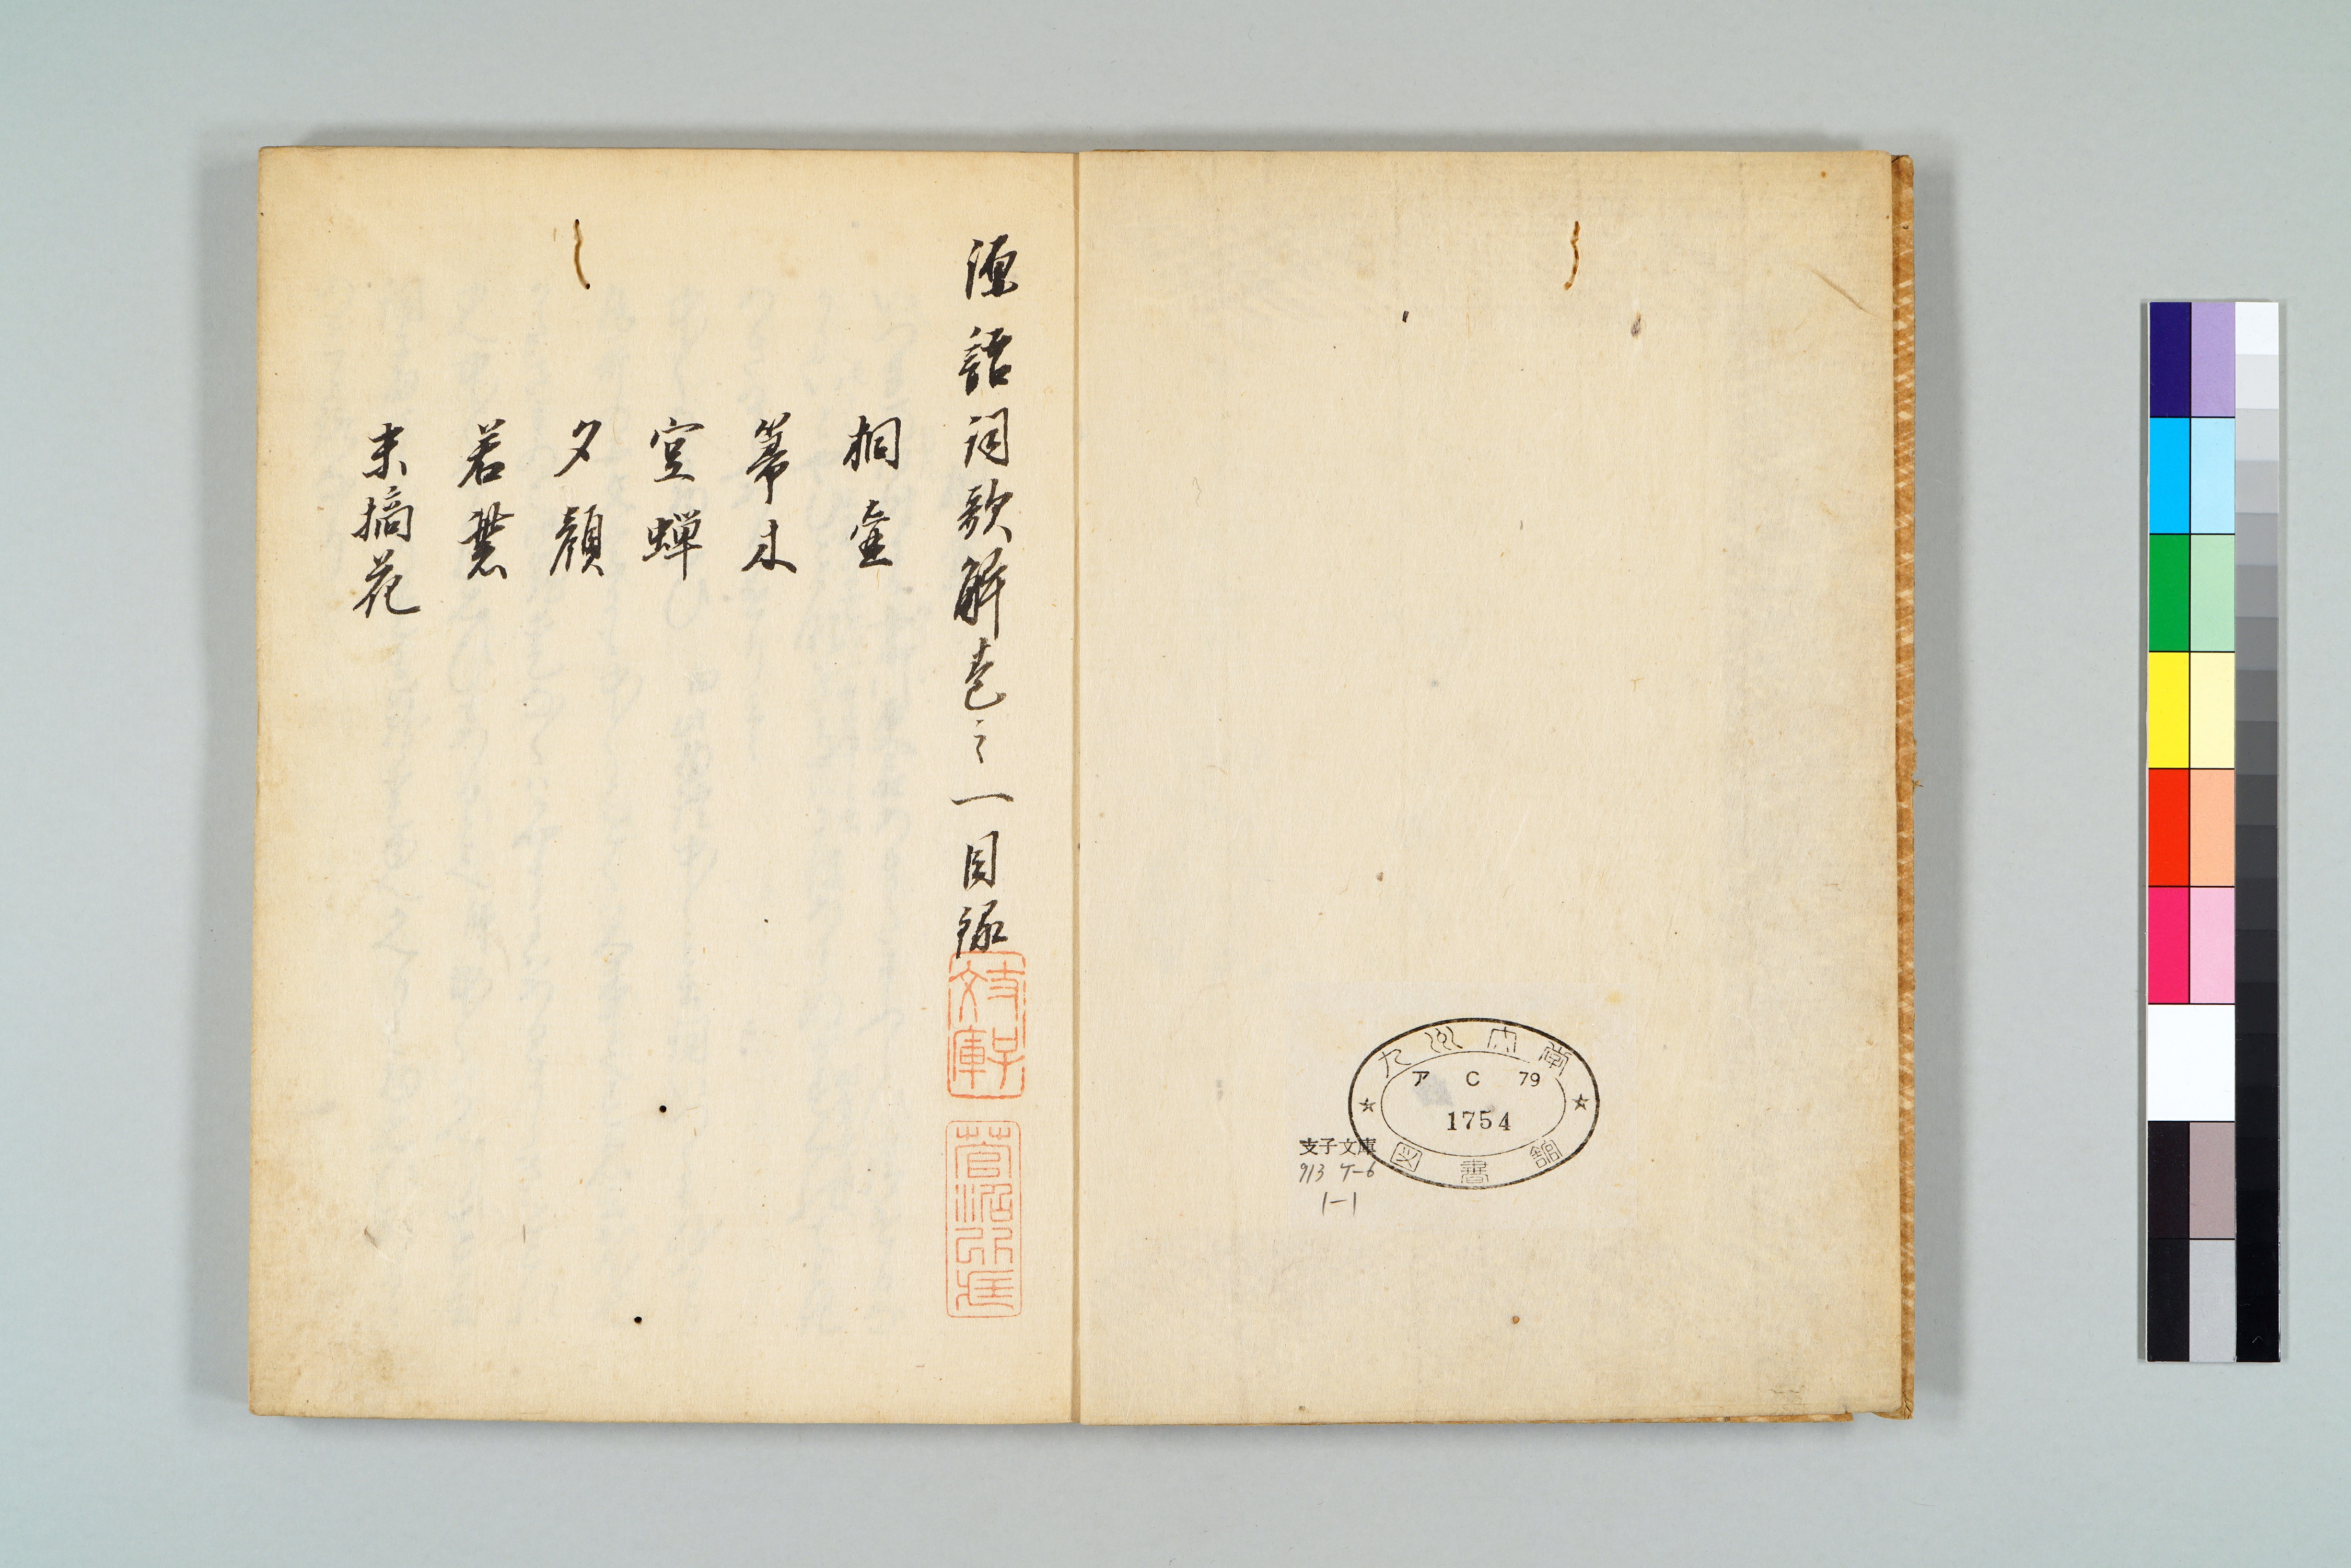 九州大學
ア C 79
1754
図書館
支子文庫
913 ケ-6
1-1
源語詞歌解巻之一目録
支子文庫
桐壷
箒木
空蝉
夕顔
若紫
末摘花